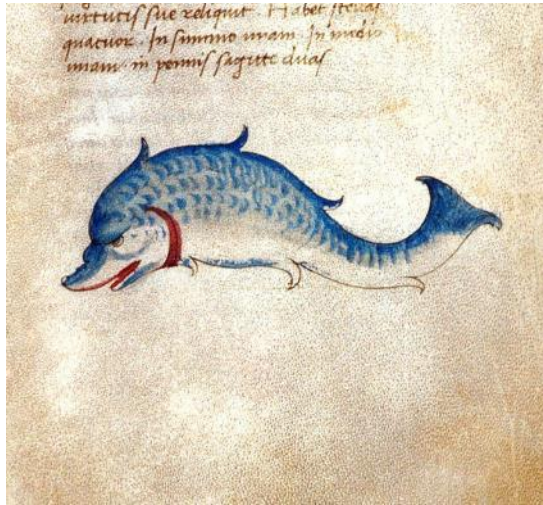 virtutis sue reliquit · Habet stellas
quatuor · In summo unam · In medio
unam · in pennis sagitte duas